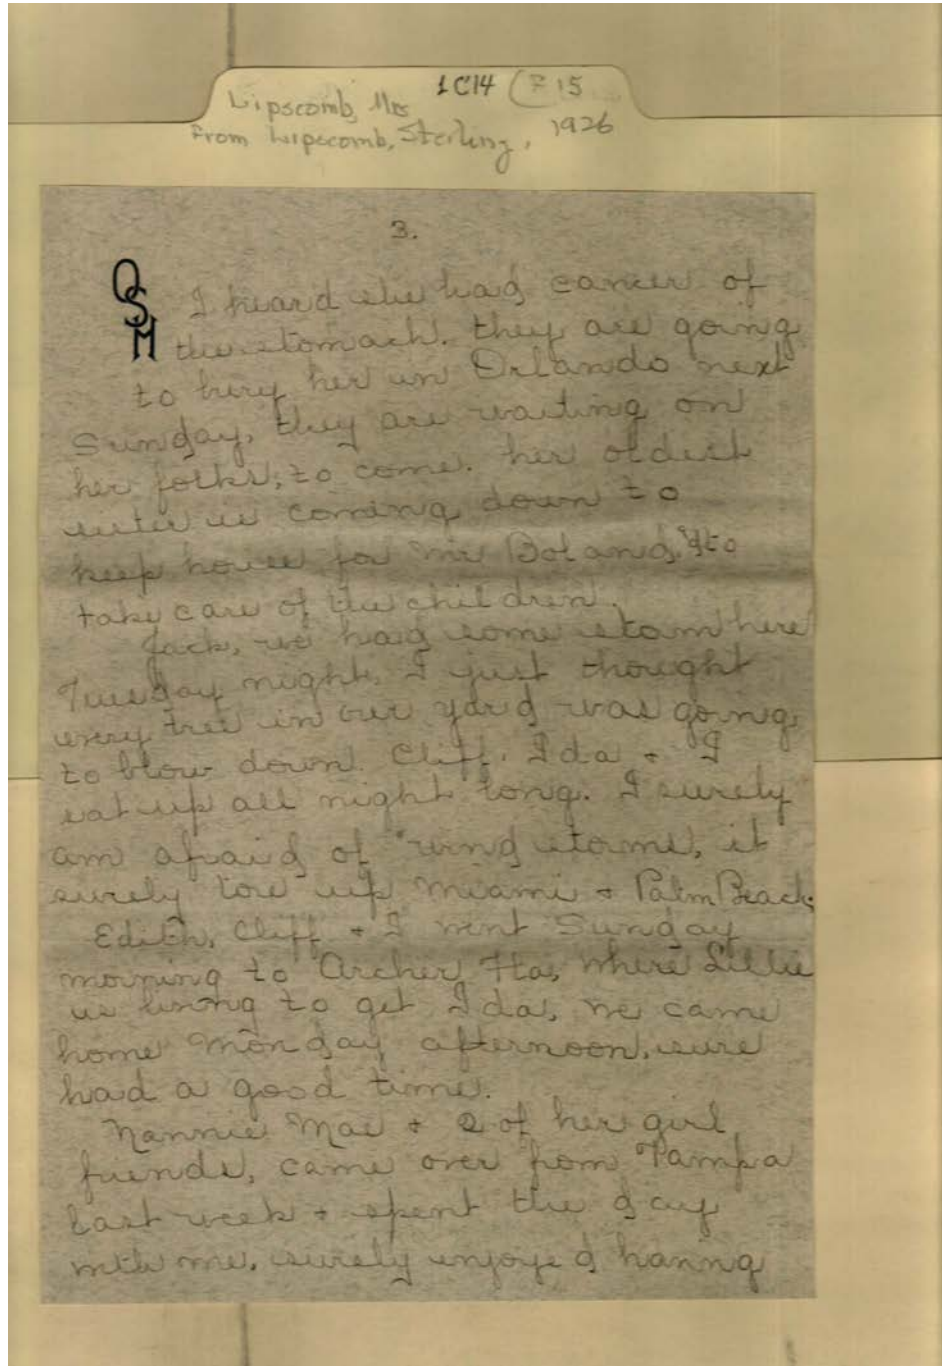 1C14 (F15
Lipscomb, Mrs
From Lipscomb, Sterling, 1926
3.
OSH
I heard she had cancer of
the stomach. they are going
to bury her in Orlando next
Sunday, they are waiting on
her folks, to come. her oldest
sister is coming down to
keep house for Mr Boland, & to
take care of the children.
Jack, we had some storm here
Tuesday night, I just thought
every tree in our yard was going
to blow down. Cliff, Ida + I
sat up all night long. I surely
am afraid of wind storms, it
surely tore up Miami + Palm Beach.
Edith, Cliff + I went Sunday
morning to Archer, Fla, where Lillie
is living to get Ida, we came
home Monday afternoon, sure
had a good time.
Nannie Mae + 2 of her girl
friends, came over from Tampa
last week + spent the day
with me. surely enjoyed having